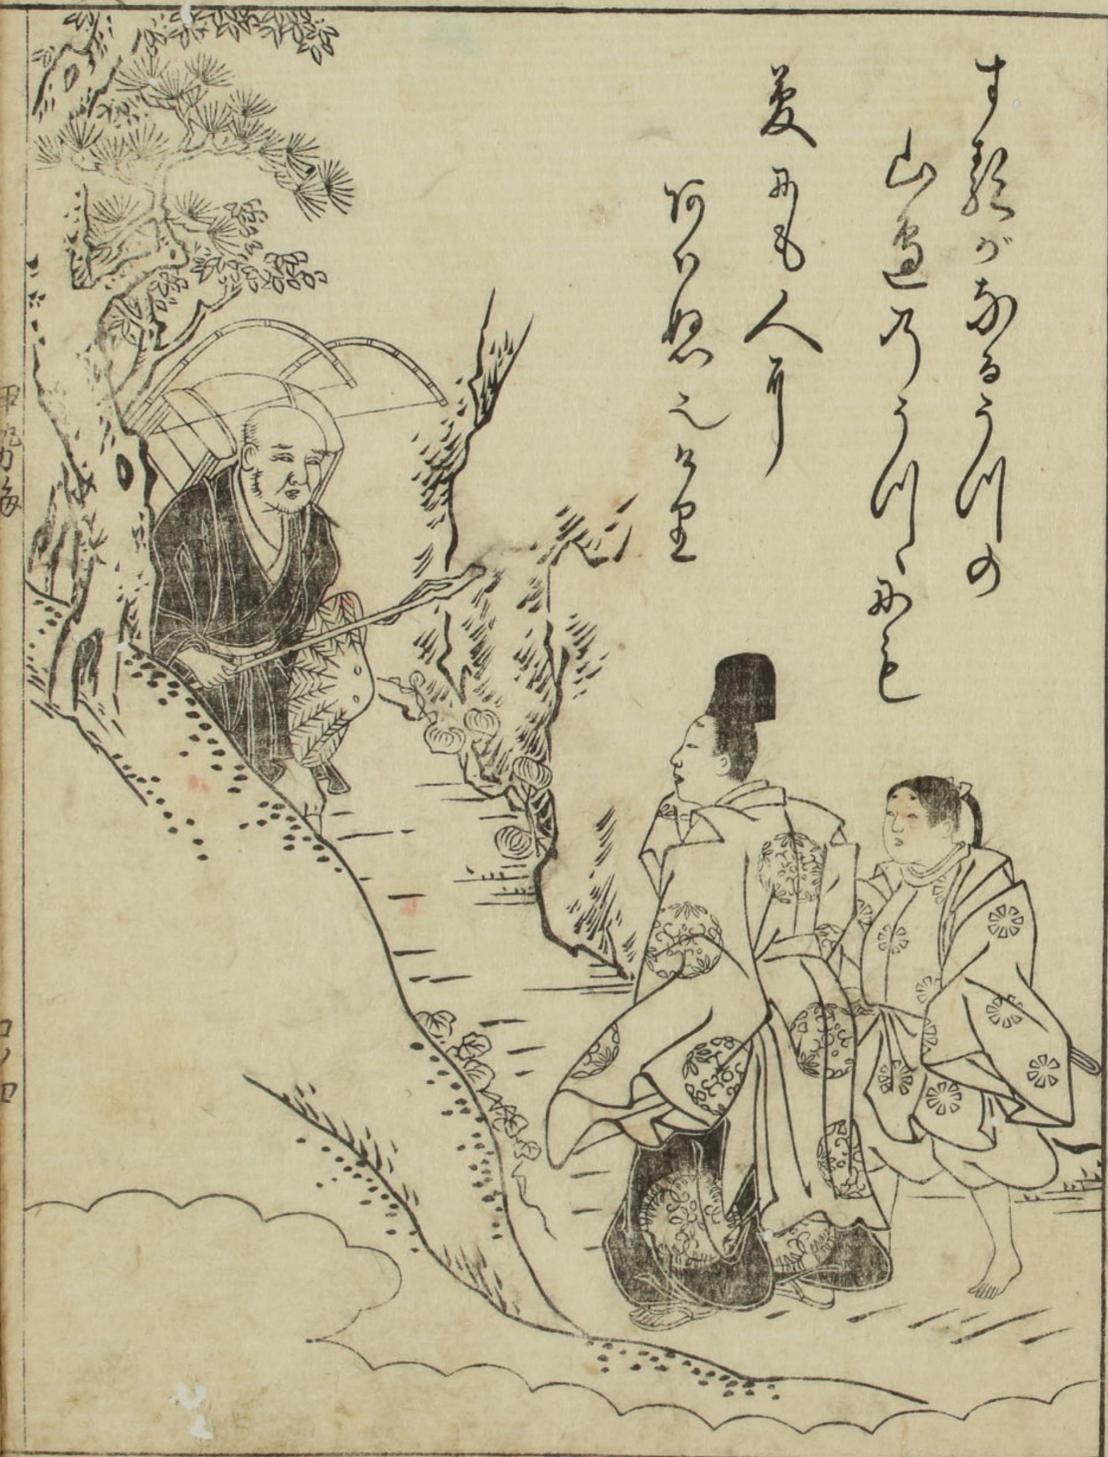 するがなるうつの
山邊のうつゝにも
夢にも人に
あはぬ也けり